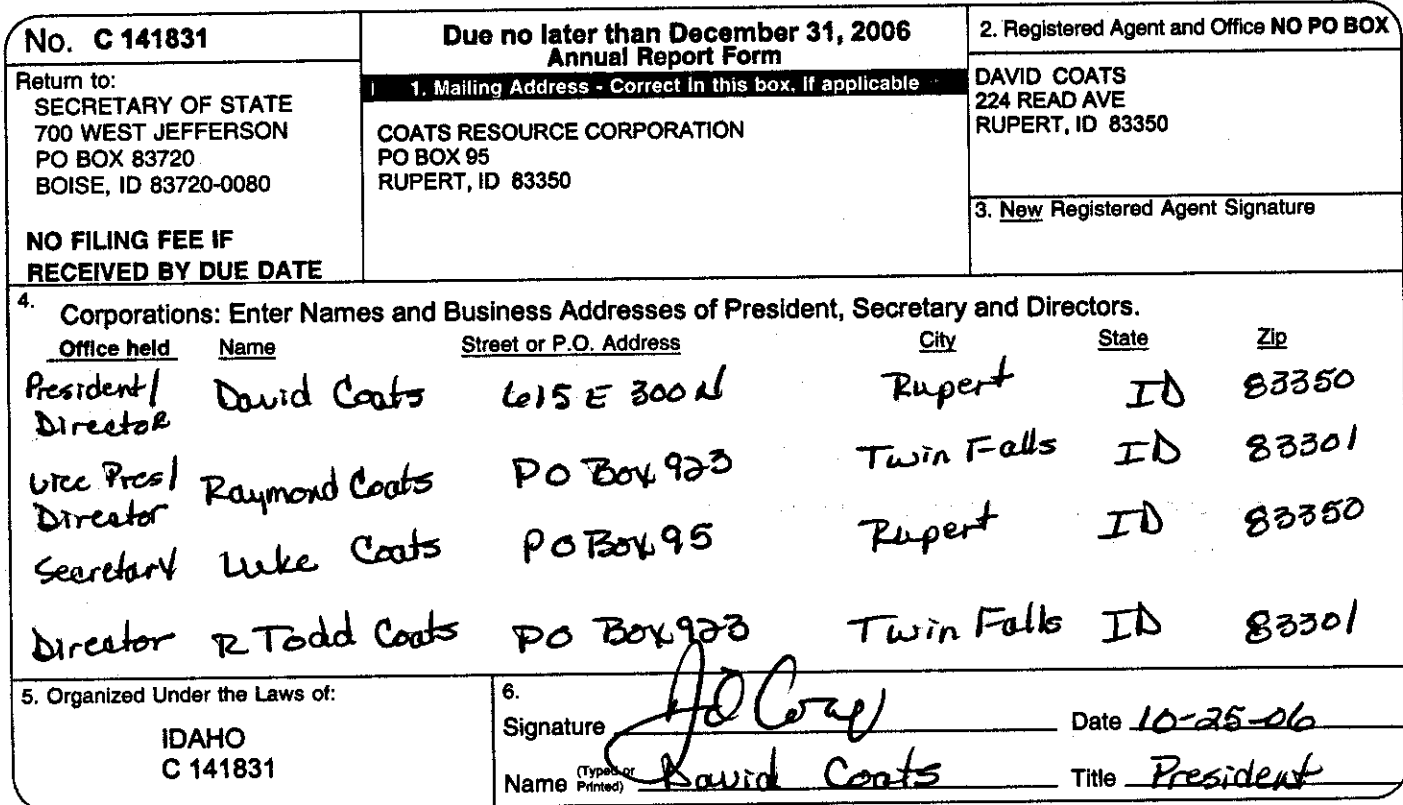 No. C 141831
Return to:
SECRETARY OF STATE
700 WEST JEFFERSON
PO BOX 83720
BOISE, ID 83720-0080
NO FILING FEE IF
RECEIVED BY DUE DATE
Due no later than December 31, 2006
Annual Report Form
1. Mailing Address - Correct in this box, if applicable
COATS RESOURCE CORPORATION
PO BOX 95
RUPERT, ID 83350
2. Registered Agent and Office NO PO BOX
DAVID COATS
224 READ AVE
RUPERT, ID 83350
3. New Registered Agent Signature
4. Corporations: Enter Names and Business Addresses of President, Secretary and Directors.
Office held Name Street or P.O. Address City State Zip
President/ David Coats 615 E 300 N Rupert ID 83350
Director
Vice Pres/ Raymond Coats PO Box 923 Twin Falls ID 83301
Director
Secretary Luke Coats PO Box 95 Rupert ID 83350
Director R Todd Coats PO Box 923 Twin Falls ID 83301
5. Organized Under the Laws of:
IDAHO
C 141831
6.
Signature Date 10-25-06
Name (Typed or Printed) David Coats Title President